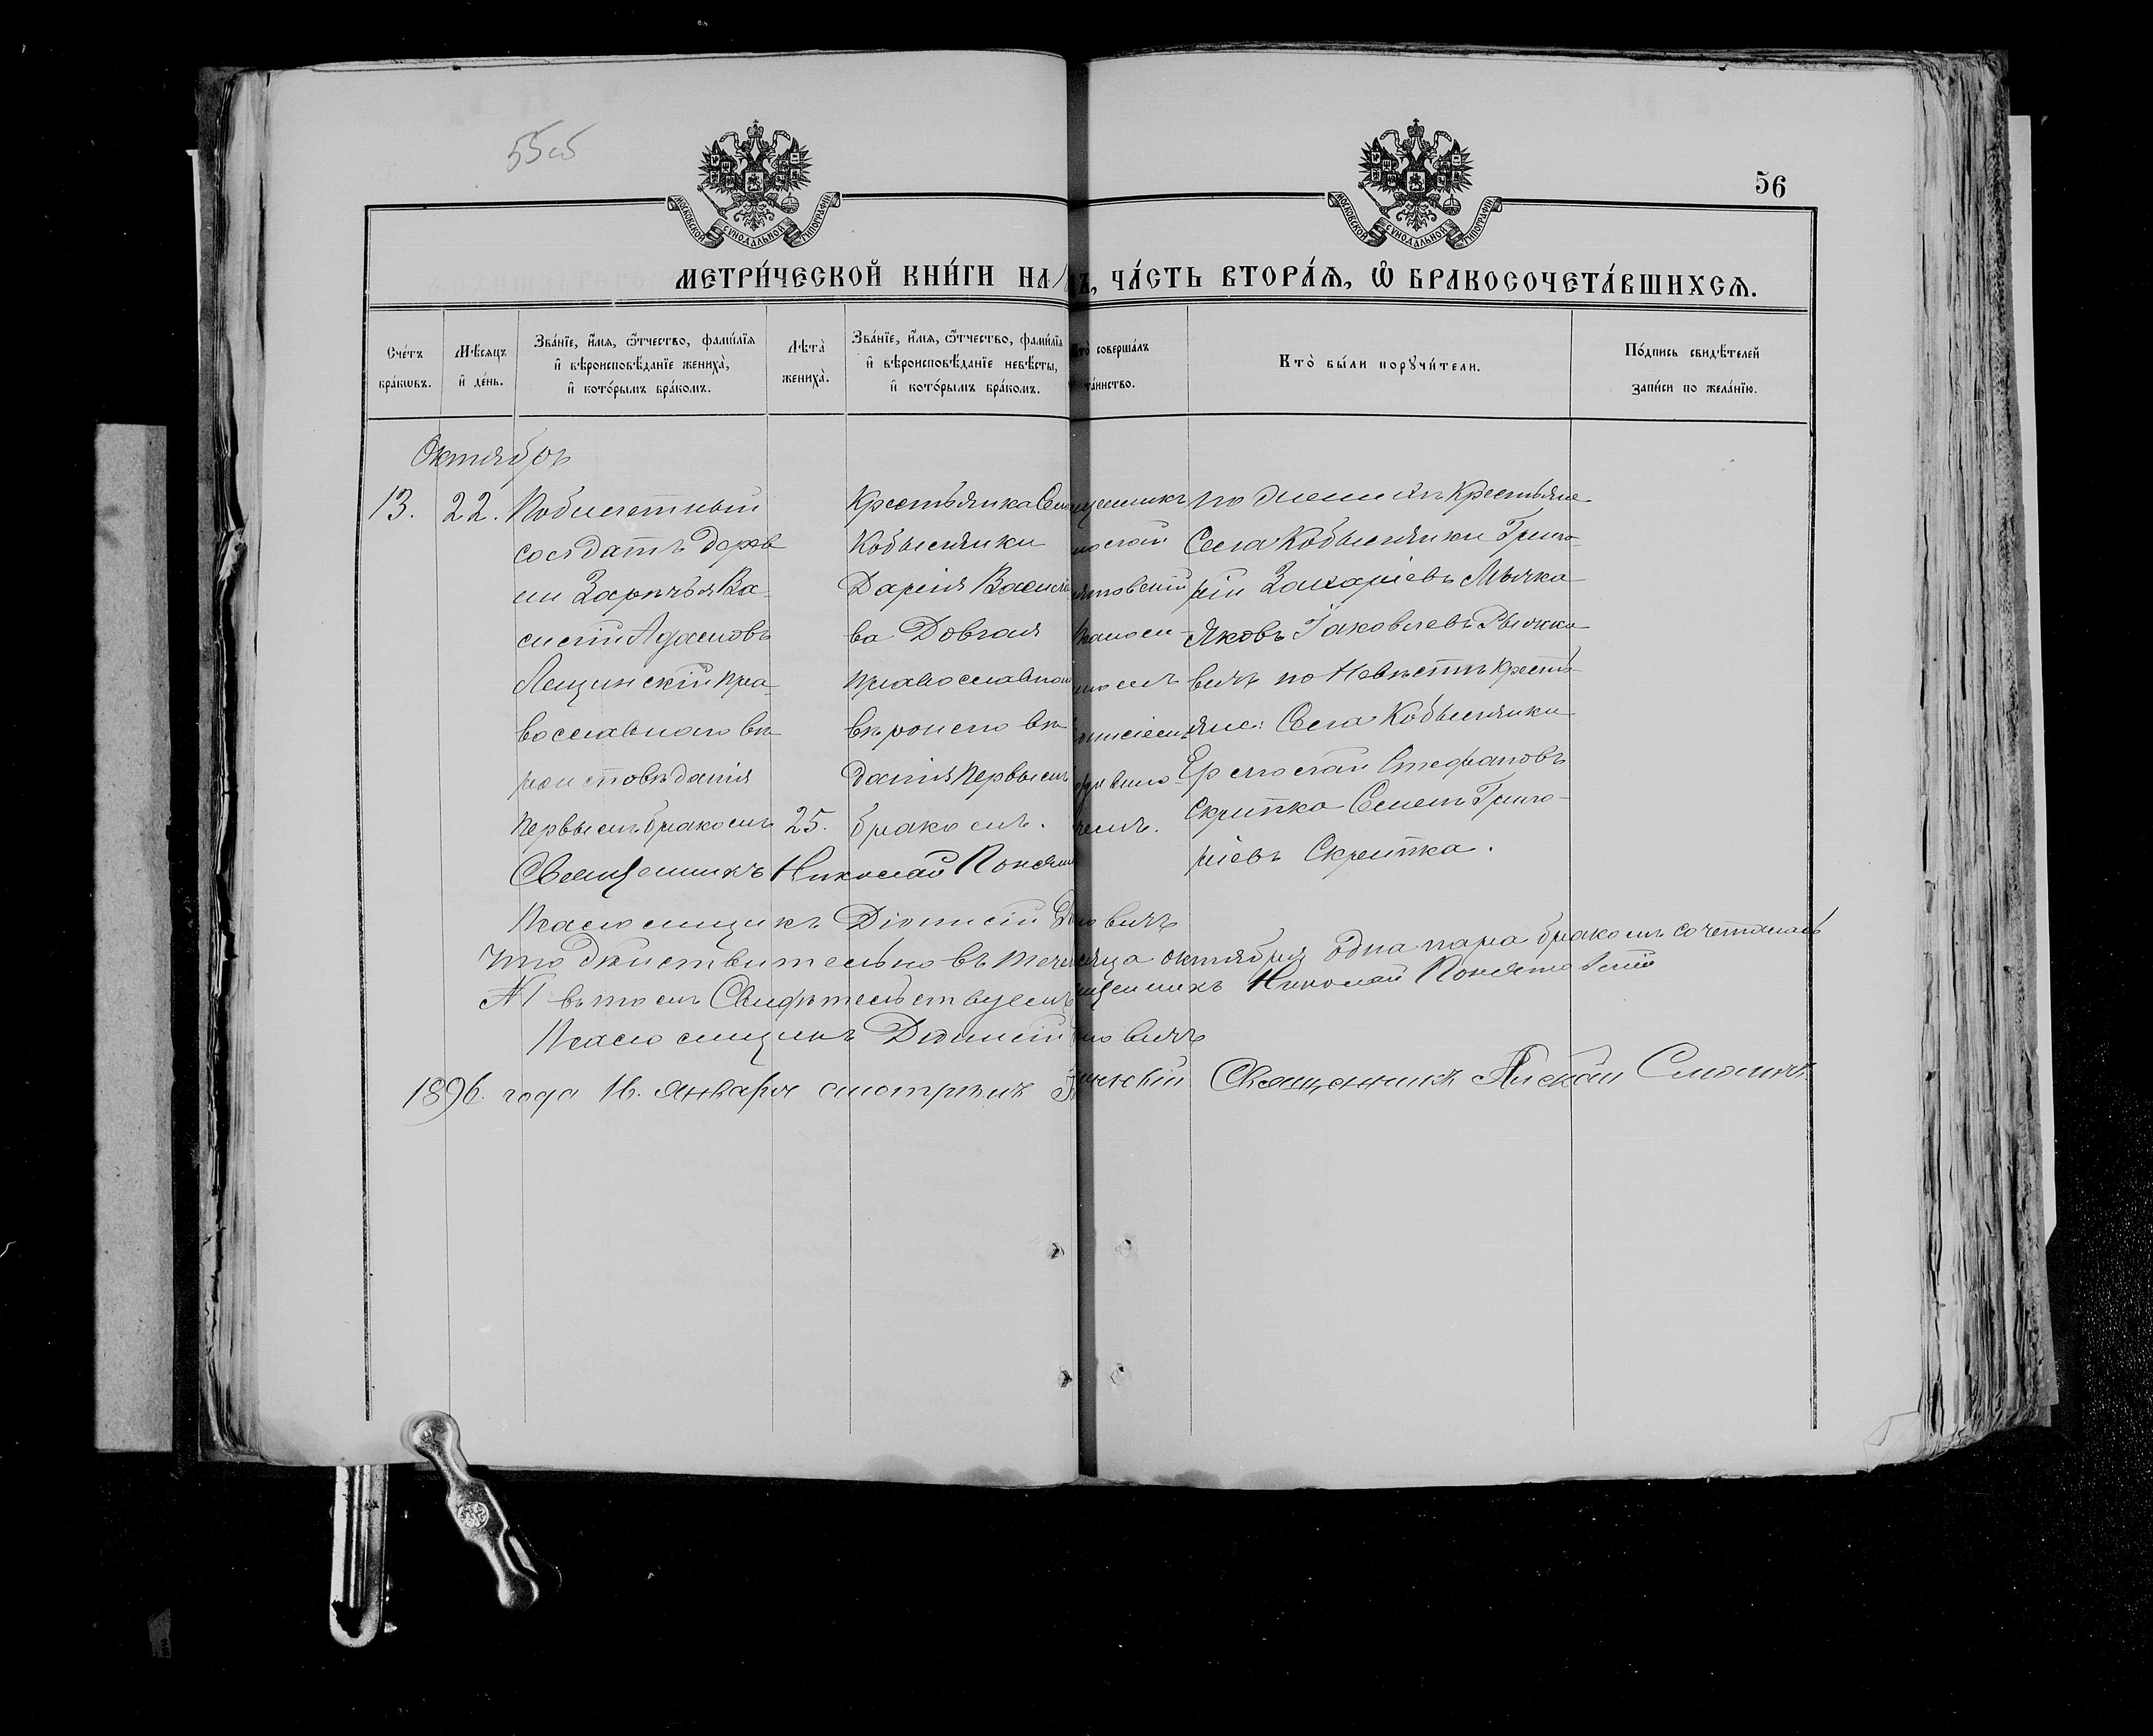 55об
56
МОСКОВСКОЙ СѴНОДАЛЬНОЙ ТИПОГРАФІИ
МОСКОВСКОЙ СѴНОДАЛЬНОЙ ТИПОГРАФІИ
МЕТРИ́ЧЕСКОЙ КНИ́ГИ НА
Ъ, ЧА́СТЬ ВТОРА́Ѧ, Ѽ БРАКОСОЧЕТА́ВШИХСѦ.
Сче́тъ бра́кωвъ.
Мѣ́сяцъ и҆ де́нь.
Зва́нїе, и҆́мѧ, ѻ҆́тчество, фами́лїѧ и҆ вѣроисповѣ́данїе жениха̀, и҆ кото́рымъ бра́комъ.
Лѣта̀ жениха̀.
Зва́нїе, и҆́мѧ, ѻ҆́тчество, фами́лїѧ и҆ вѣроисповѣ́данїе невѣ́сты, и҆ кото́рымъ бра́комъ.
Кто̀ соверша́лъ
та́инство.
Кто̀ бы́ли порꙋчи́тели.
По́дпись свидѣ́телей за́писи по жела́нїю.
Октябрь
13.
22.
Побилетный
солдатъ дерев
ни Зарѣчья Ва-
силій Адамовъ
Лещинскій пра-
вославнаго вѣ
роисповѣданія
первымъ бракомъ
25.
Крестьянка Села
Кобылянки
Дарія Василіе
ва Довгая
православнаго
вѣроисповѣ
данія первымъ
бракомъ.
щенникъ
колай
ятовскій
Псалом-
комъ
онисіемъ
чемъ.
по женихѣ: Крестьяне
Села Кобылянки Григо-
рій Захаріевъ Мычка
Яковъ Іаковлевъ
вичъ по Невѣстѣ Крестъ-
яне: Села Кобылянки
Ермолай Стефановъ
Скрипка Семенъ Григо-
ріевъ Скрипка.
Священникъ Николай Понят
Псаломщикъ Діонисій
вичъ
Что дѣйствительно въ тече
сяца октября одна пара бракомъ сочеталась
№1 въ томъ Свидѣтельствуемъ
щенникъ Николай Понятовскій
Псаломщикъ Діонисій
вичъ
1896. года 16. Января смотрѣлъ
Священникъ Алексѣй